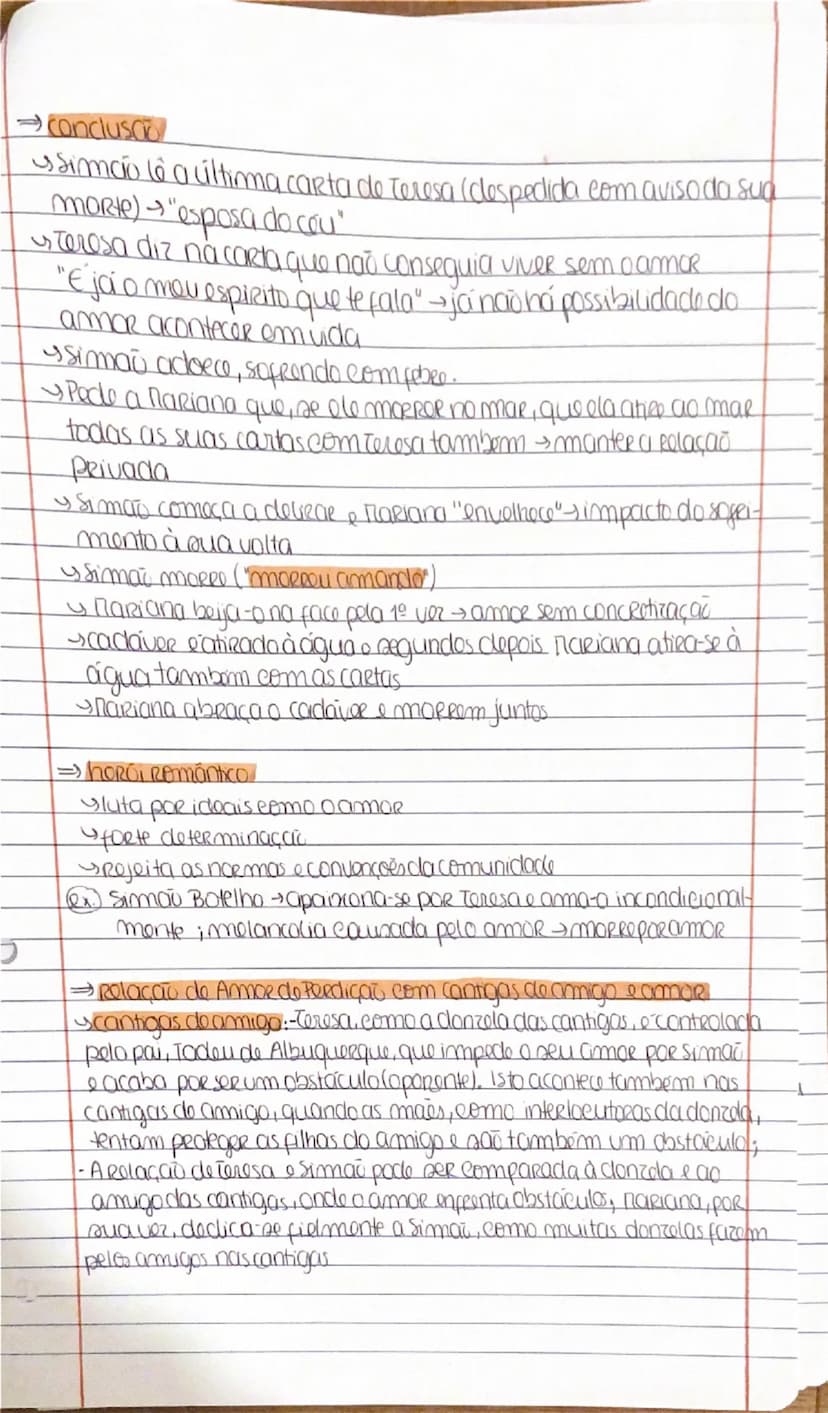 ⇒ conclusão
↳ Simão lê a última carta de Teresa (despedida com aviso da sua
morte) → "esposa do céu"
↳ Teresa diz na carta que não conseguia viver sem o amor
"É já o meu espirito que te fala" → já não há possibilidade do
amor acontecer em vida
↳ Simão adoece, sofrendo com febre.
↳ Pede a Mariana que, se ele morrer no mar, que ela atire ao mar
todas as suas cartas com Teresa também → manter a relação
privada
↳ Simão começa a delirar e Mariana "envelhece" → impacto do sofri-
mento à sua volta
↳ Simão morre ("morreu amando")
↳ Mariana beija-o na face pela 1º vez → amor sem concretização
→ cadáver é atirado à água e segundos depois Mariana atira-se à
água também com as cartas
↳ Mariana abraça o cadáver e morrem juntos
⇒ herói romântico
↳ luta por ideais como o amor
↳ forte determinação
↳ rejeita as normas e convenções da comunidade
(ex.) Simão Botelho → apaixona-se por Teresa e ama-a incondicional-
mente ; melancolia causada pelo amor → morre por amor
⇒ Relação de Amor de Perdição com Cantigas de amigo e amor
↳ cantigas de amigo: - Teresa, como a donzela das cantigas, é controlada
pelo pai, Tadeu de Albuquerque, que impede o seu amor por Simão
e acaba por ser um obstáculo (oponente). Isto acontece também nas
cantigas de amigo, quando as mães, como interlocutoras da donzela,
tentam proteger as filhas do amigo e são também um obstáculo;
- A relação de Teresa e Simão pode ser comparada à donzela e ao
amigo das cantigas, onde o amor enfrenta obstáculos; Mariana, por
sua vez, dedica-se fielmente a Simão, como muitas donzelas fazem
pelos amigos nas cantigas